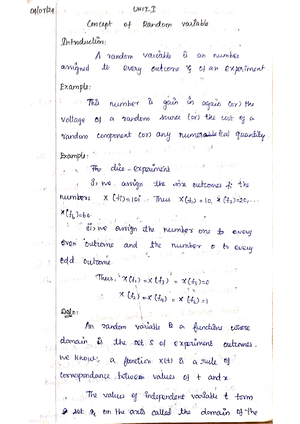 UNIT-I
Concept of Random variable
Introduction:
A random variable is an number
assigned to every outcome of an experiment
Example:
This number is gain in again (or) the
voltage of a random source (or) the cost of a
random component (or) any numerical quantity
Example:
The dice - experiment
i, we assign the six outcomes fi the
numbers X(fi)=10i Thus X(f1)=10, X(f2)=20,...
X(f6)=60
ii, we assign the number one to every
even outcome and the number 0 to every
odd outcome
Thus, X(f1)=X(f3)=X(f5)=0
X(f2)=X(f4)=X(f6)=1
An random variable is a function whose
domain is the set S of experiment outcomes.
we know, a function x(t) is a rule of
correspondance between values of t and x.
The values of independent variable t form
a set on the axis called the domain of the